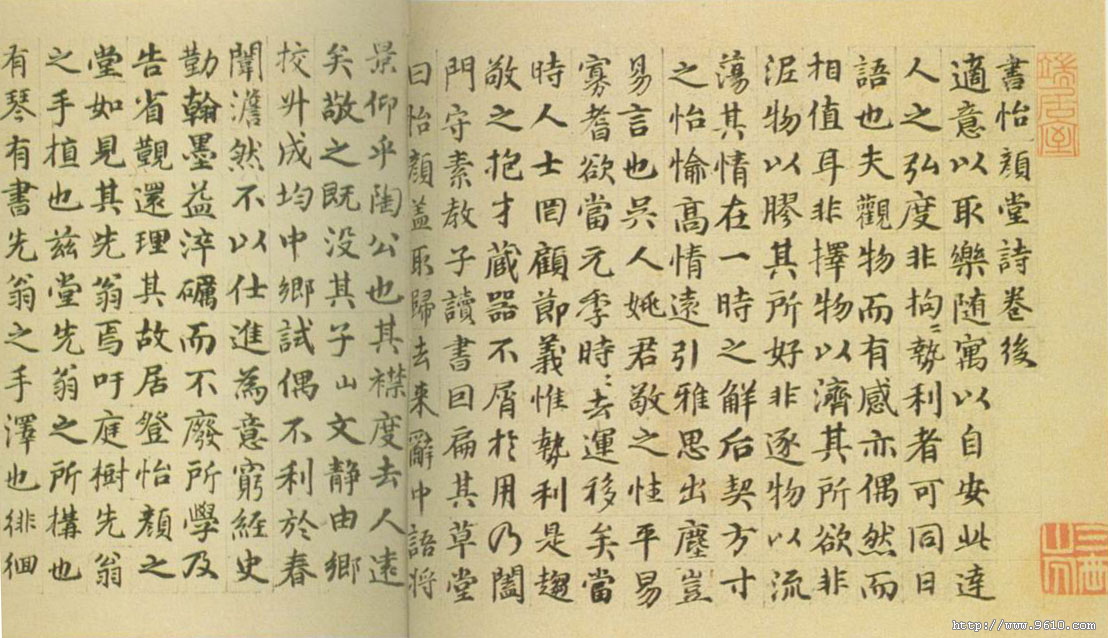 書怡顔堂詩卷後
適意以取樂随寓以自安此達
人之弘度非拘〻勢利者可同日
語也夫觀物而有感亦偶然而
相值耳非擇物以濟其所欲非
泥物以膠其所好非逐物以流
蕩其情在一時之解后契方寸
之怡愉高情遠引雅思出塵豈
易言也吳人姚君敬之性平易
寡耆欲當元季時〻去運移矣當
時人士罔顧節義惟勢利是趨
敬之抱才蔵器不屑扵用乃闔
門守素教子讀書回扁其草堂
曰怡顔盖取歸去来辭中語将
景仰乎陶公也其襟度去人遠
矣敬之既没其子山文静由鄉
挍升成均中鄉試偶不利於春
闈澹然不以仕進為意窮經史
勤翰墨益淬礪而不廢所學及
告省覲還理其故居登怡顔之
堂如見其先翁焉吁庭樹先翁
之手植也兹堂先翁之所構也
有琴有書先翁之手澤也徘徊
端居室
http://www.9610.com